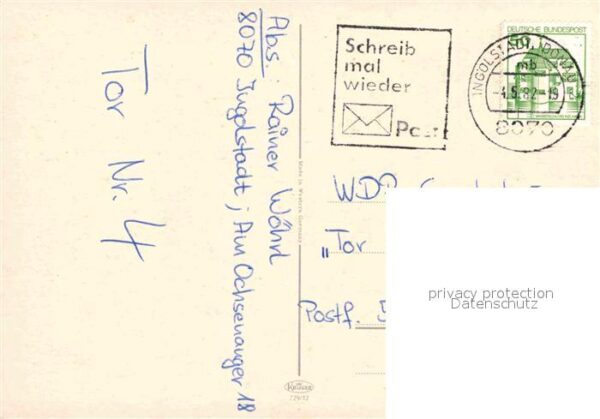 Tor Nr. 4
Abs.: Rainer Wöhrl
8070 Ingolstadt; Am Ochsenanger 18
Schreib
mal
wieder
Post
DEUTSCHE BUNDESPOST
INGOLSTADT, DONAU
mb
-4.5.82-19
8070
WDR
„Tor
Postf.
Made in Western Germany
Krüger
privacy protection
Datenschutz